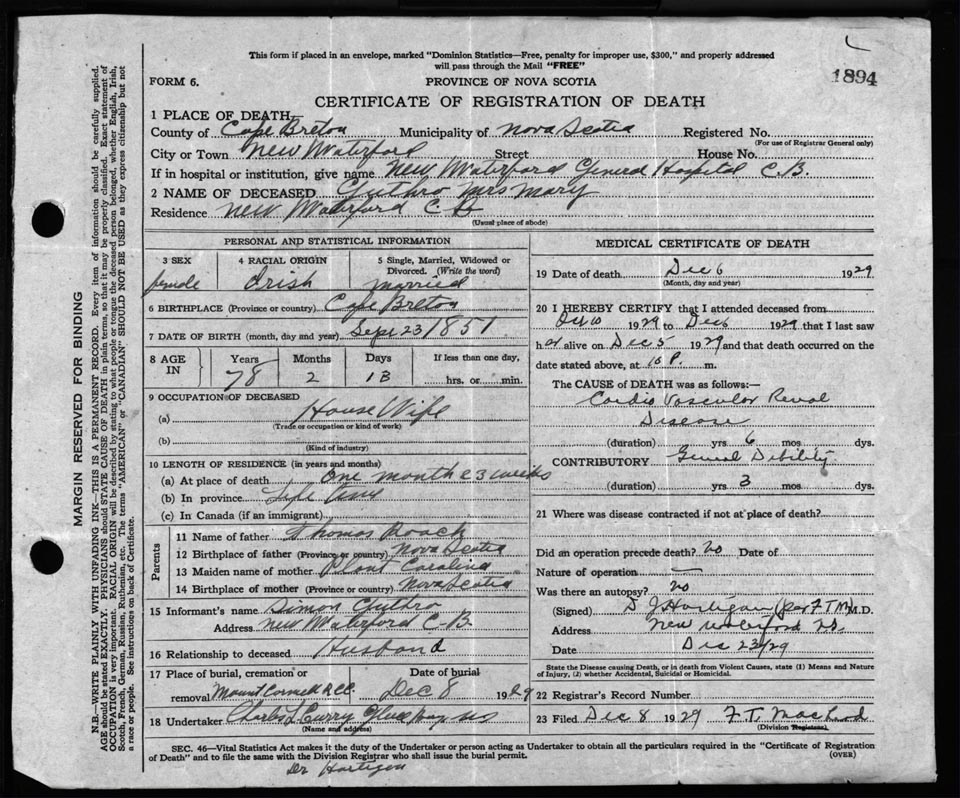 This form if placed in an envelope, marked "Dominion Statistics—Free, penalty for improper use, $300," and properly addressed
will pass through the Mail "FREE"
1894
FORM 6.
PROVINCE OF NOVA SCOTIA
CERTIFICATE OF REGISTRATION OF DEATH
1 PLACE OF DEATH
County of Cape Breton Municipality of Nova Scotia Registered No.
(For use of Registrar General only)
City or Town New Waterford Street House No.
If in hospital or institution, give name New Waterford General Hospital C.B.
2 NAME OF DECEASED Guthro Mrs Mary
Residence New Waterford C B
(Usual place of abode)
PERSONAL AND STATISTICAL INFORMATION
3 SEX 4 RACIAL ORIGIN 5 Single, Married, Widowed or Divorced. (Write the word)
female Irish married
6 BIRTHPLACE (Province or country) Cape Breton
7 DATE OF BIRTH (month, day and year) Sept 23 1851
8 AGE IN Years Months Days If less than one day,
78 2 13 hrs. or min.
9 OCCUPATION OF DECEASED
(a) House Wife
(Trade or occupation or kind of work)
(b)
(Kind of industry)
10 LENGTH OF RESIDENCE (in years and months)
(a) At place of death One month & 3 weeks
(b) In province Life time
(c) In Canada (if an immigrant)
Parents
11 Name of father Thomas Roach
12 Birthplace of father (Province or country) Nova Scotia
13 Maiden name of mother Plant Carolina
14 Birthplace of mother (Province or country) Nova Scotia
15 Informant's name Simon Guthro
Address New Waterford C-B.
16 Relationship to deceased Husband
17 Place of burial, cremation or Date of burial
removal Mount Carmel R.C.C. Dec 8 1929
18 Undertaker Charles L Curry Glace Bay NS
(Name and address)
MEDICAL CERTIFICATE OF DEATH
19 Date of death Dec 6 1929
(Month, day and year)
20 I HEREBY CERTIFY that I attended deceased from
1929 to Dec 6 1929 that I last saw
her alive on Dec 5 1929 and that death occurred on the
date stated above, at 10 P. m.
The CAUSE of DEATH was as follows:—
Cardio Vascular Renal
Disease
(duration) yrs 6 mos dys.
CONTRIBUTORY General Debility
(duration) yrs 3 mos dys.
21 Where was disease contracted if not at place of death?
Did an operation precede death? no Date of
Nature of operation —
Was there an autopsy? no
(Signed) D J Hartigan (per F T M) M.D.
Address New Waterford NS.
Date Dec 23/29
State the Disease causing Death, or in death from Violent Causes, state (1) Means and Nature
of Injury, (2) whether Accidental, Suicidal or Homicidal.
22 Registrar's Record Number
23 Filed Dec 8 1929 F.T. MacLeod
(Division Registrar)
SEC. 46—Vital Statistics Act makes it the duty of the Undertaker or person acting as Undertaker to obtain all the particulars required in the "Certificate of Registration
of Death" and to file the same with the Division Registrar who shall issue the burial permit.
(OVER)
Dr Hartigan
MARGIN RESERVED FOR BINDING
N.B.—WRITE PLAINLY WITH UNFADING INK—THIS IS A PERMANENT RECORD. Every item of information should be carefully supplied.
AGE should be stated EXACTLY. PHYSICIANS should STATE CAUSE OF DEATH in plain terms, so that it may be properly classified. Exact statement of
OCCUPATION is very important. RACIAL ORIGIN will be described by stating to what people or tongue the deceased person belonged, whether English, Irish,
Scotch, French, German, Russian, Ruthenian, etc. The terms "AMERICAN" or "CANADIAN" SHOULD NOT BE USED as they express citizenship but not
a race or people. See instructions on back of Certificate.